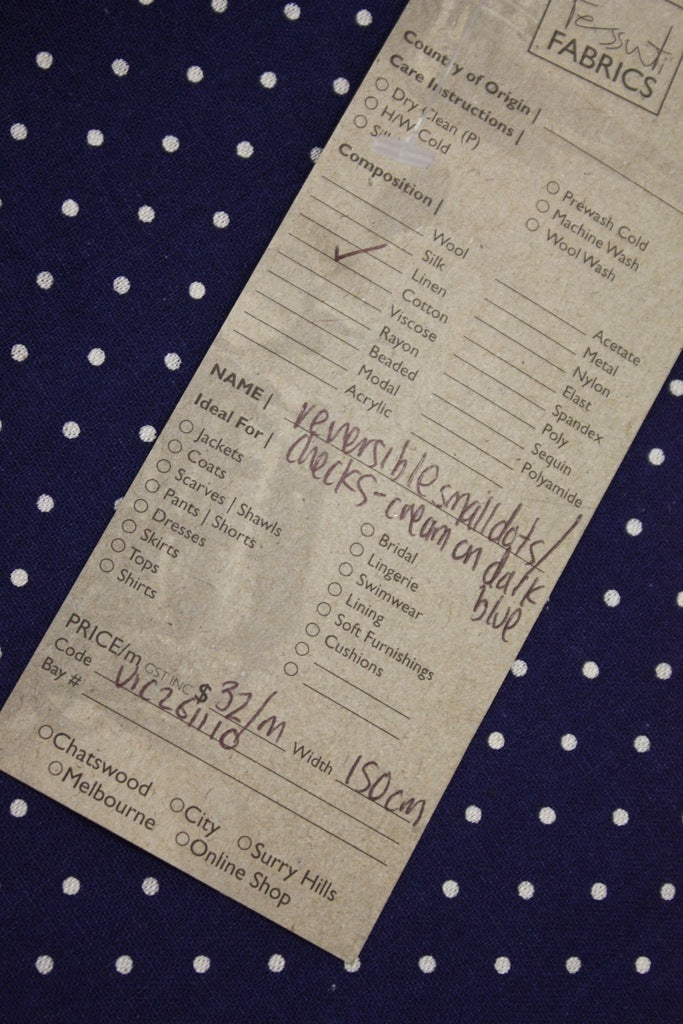 Tessuti
FABRICS
Country of Origin |
Care Instructions |
Dry Clean (P)
H/W Cold
Prewash Cold
Machine Wash
Wool Wash
Composition |
Wool
Silk
Linen
Cotton
Viscose
Rayon
Beaded
Modal
Acrylic
Acetate
Metal
Nylon
Elast
Spandex
Poly
Sequin
Polyamide
NAME | reversible small dots/
checks - cream on dark
blue
Ideal For |
Jackets
Coats
Scarves | Shawls
Pants | Shorts
Dresses
Skirts
Tops
Shirts
Bridal
Lingerie
Swimwear
Lining
Soft Furnishings
Cushions
PRICE/m GST INC $ 32/m
Code VIC261110 Width 150cm
Bay #
Chatswood City Surry Hills
Melbourne Online Shop